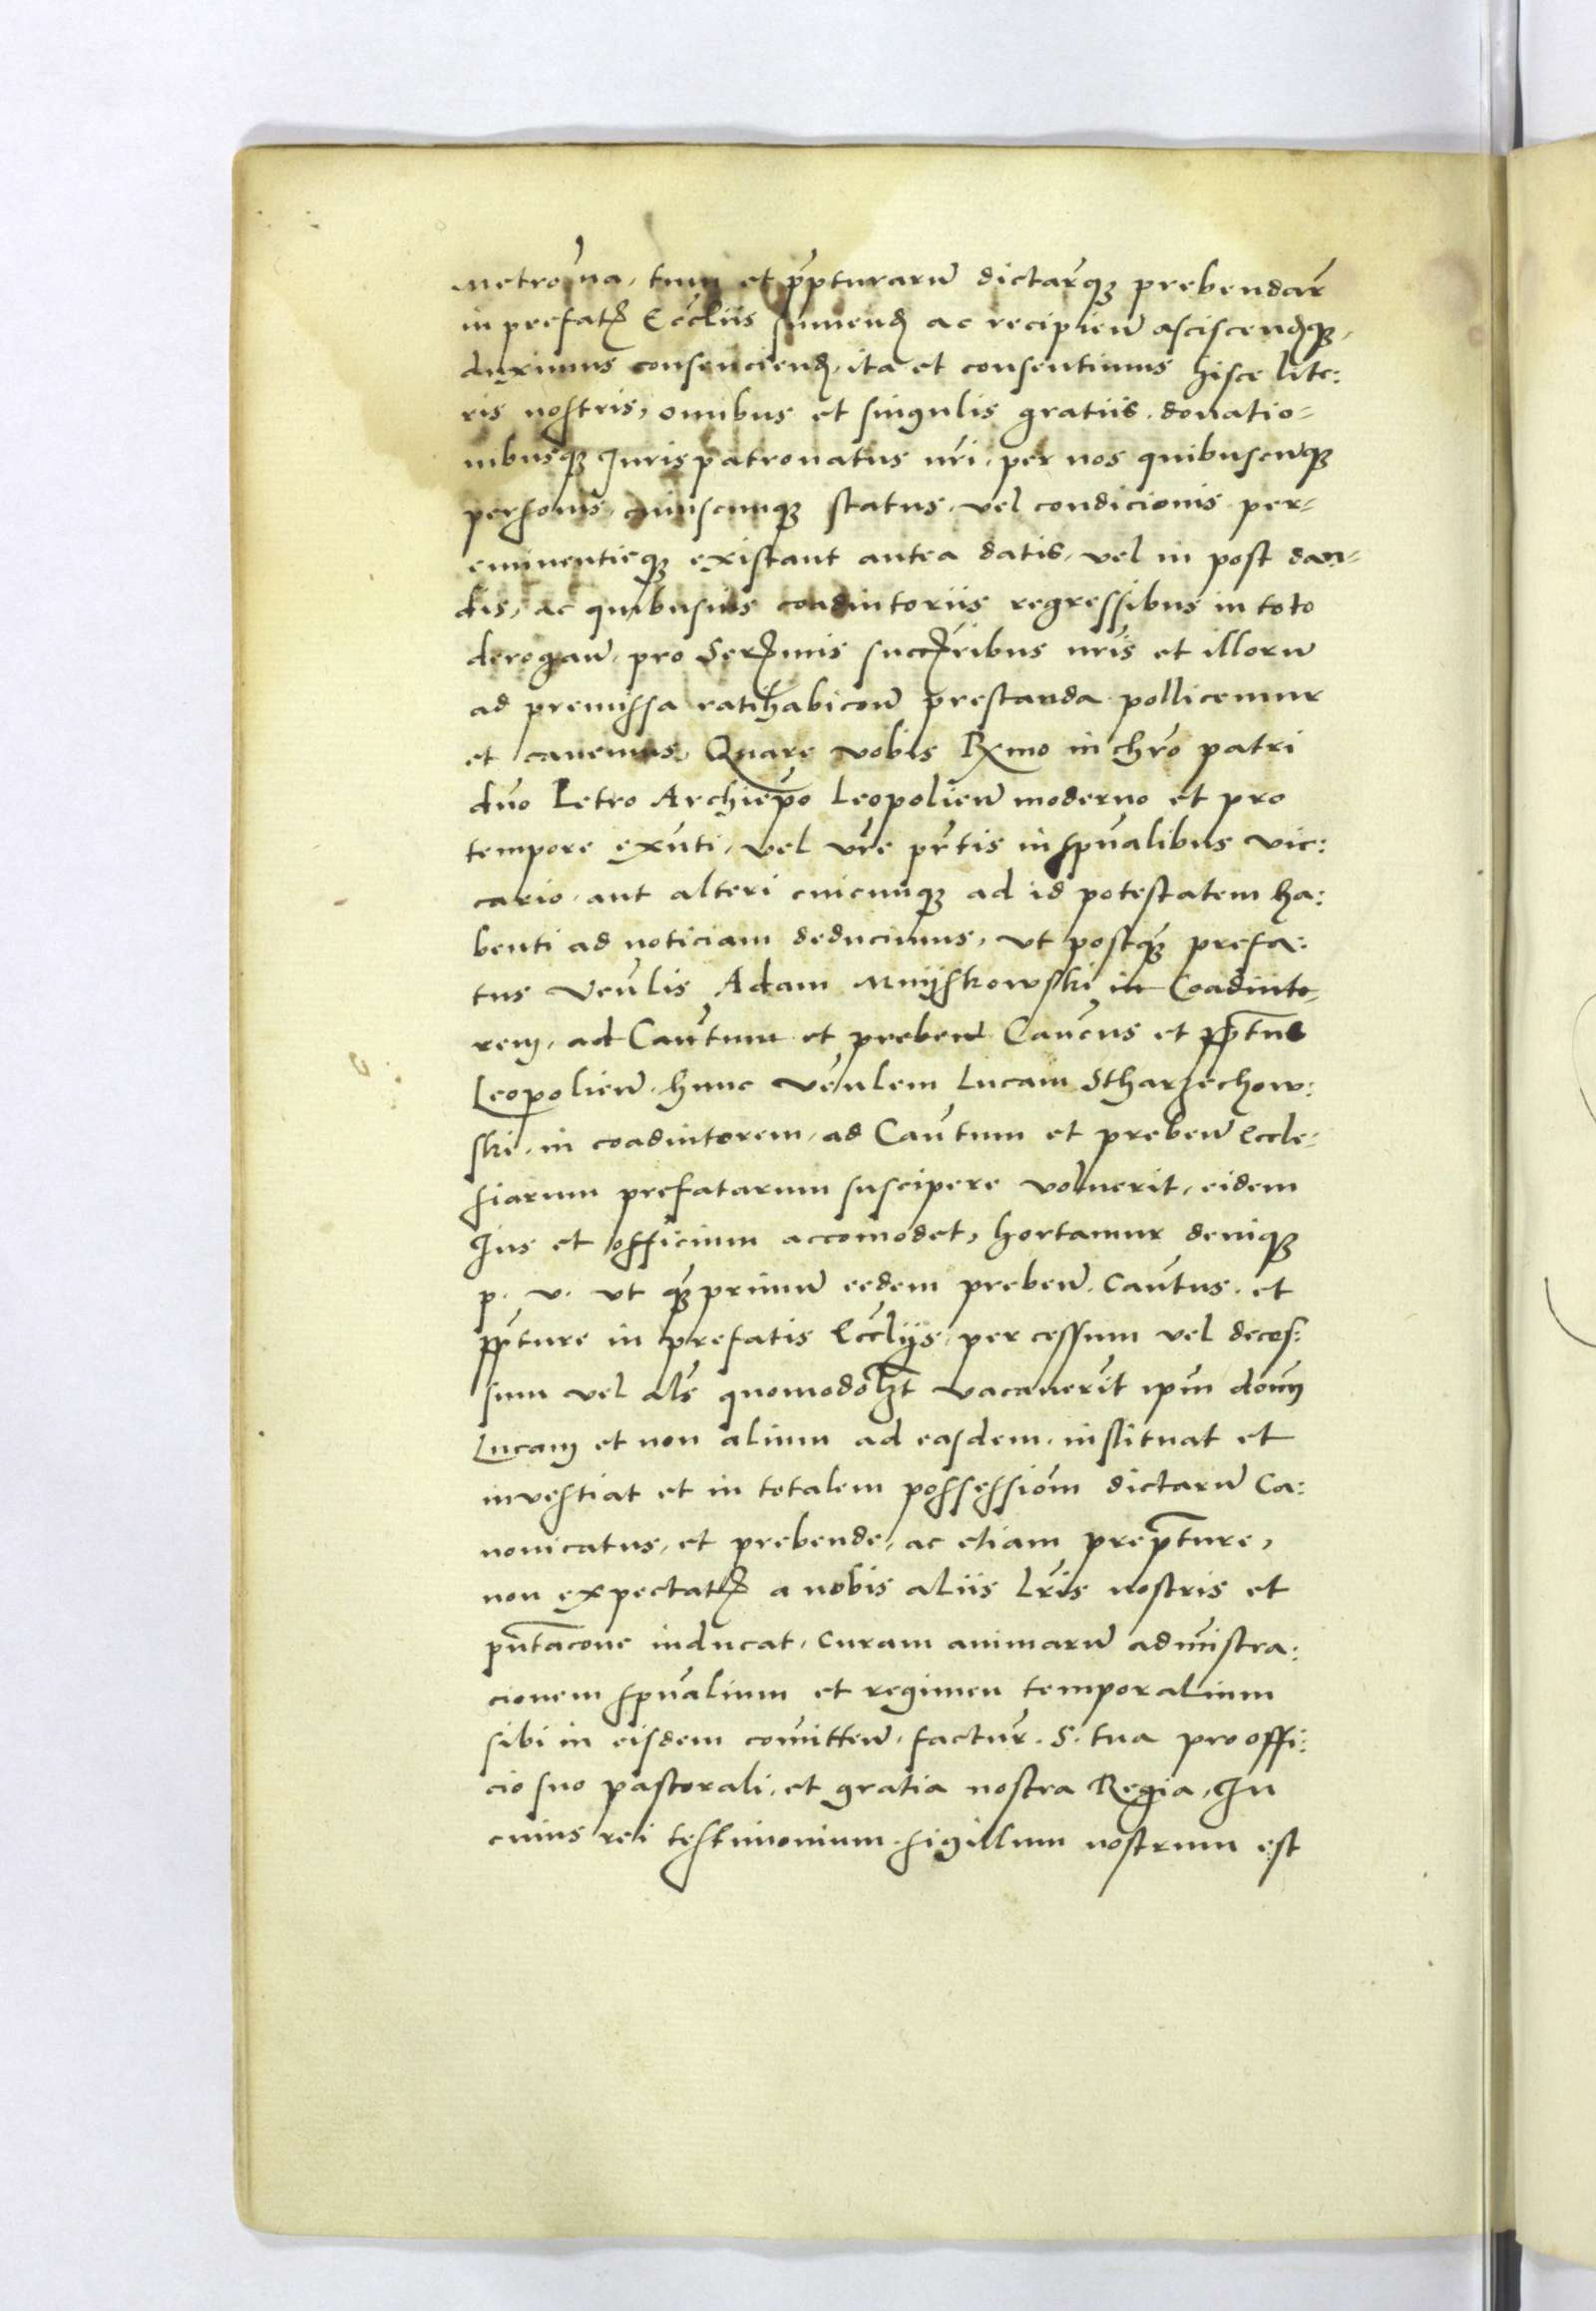 Metro͠na, tum et p͠rpturaru͠ dictar͠q̨ prebendar͠
in prefat̨ Eccl͠iis sumend̨ ac recipien͠ asciscend̨q̨,
duximus consenciend̨, ita et consentimus hisce lite:
ris nostris, omibus et singulis gratiis, donatio-
nibusq̨ Jurispatronatus nr͠i, per nos quibuscu͠q̨
personis, cuiuscunq̨ status, vel condicionis per-
eminentieq̨ existant antea datis, vel in post dan-
dis, ac quibusuis coadiutoriis regressibus in toto
derogan͠, pro Ser̨imis succr͠ibus nr͠is et illoru͠
ad premissa ratihabicon͠ prestanda pollicemur
et cavemus, Quare vobis Rx͠mo in chr͠o patri
dn͠o Petro Archiep͠o Leopolien͠ moderno et pro
tempore exn͠ti, vel vr͠e pr͠tis in spu͠alibus vic:
cario, aut alteri cuicunq̨ ad id potestatem ha:
benti ad noticiam deducimus, vt postq̨͠ prefa:
tus Ven͠lis Adam Mnijskowski in Coadiuto-
rem, ad Can͠tum et preben͠ Canc͠us et pp͠tus
Leopolien͠, hunc Ven͠lem Lucam Stharzechow:
ski, in coadiutorem, ad Can͠tum et preben͠ Eccle-
siarum prefatarum suscipere voluerit, eidem
Jus et officium accomodet, hortamur deniq̨
p. v. vt q̨͠primu͠ eedem preben͠. Can͠tus. et
pp͠ture in prefatis Eccl͠ijs, per cessum vel deces:
sum vel al͠s quomodol͠zt vacauer͠it ip͠m dom̄
Lucam et non alium ad easdem, instituat et
investiat et in totalem possessio͠m dictaru͠ Ca:
nonicatus, et prebende, ac etiam prep͠ture,
non expectat̨ a nobis aliis lr͠is nostris et
pn͠tacone inducat, curam animaru͠ adm͠istra:
cionem spu͠alium et regimen temporalium
sibi in eisdem comitten͠, factur͠. S. tua pro offi:
cio suo pastorali, et gratia nostra Regia, In
cuius rei testimonium sigillum nostrum est